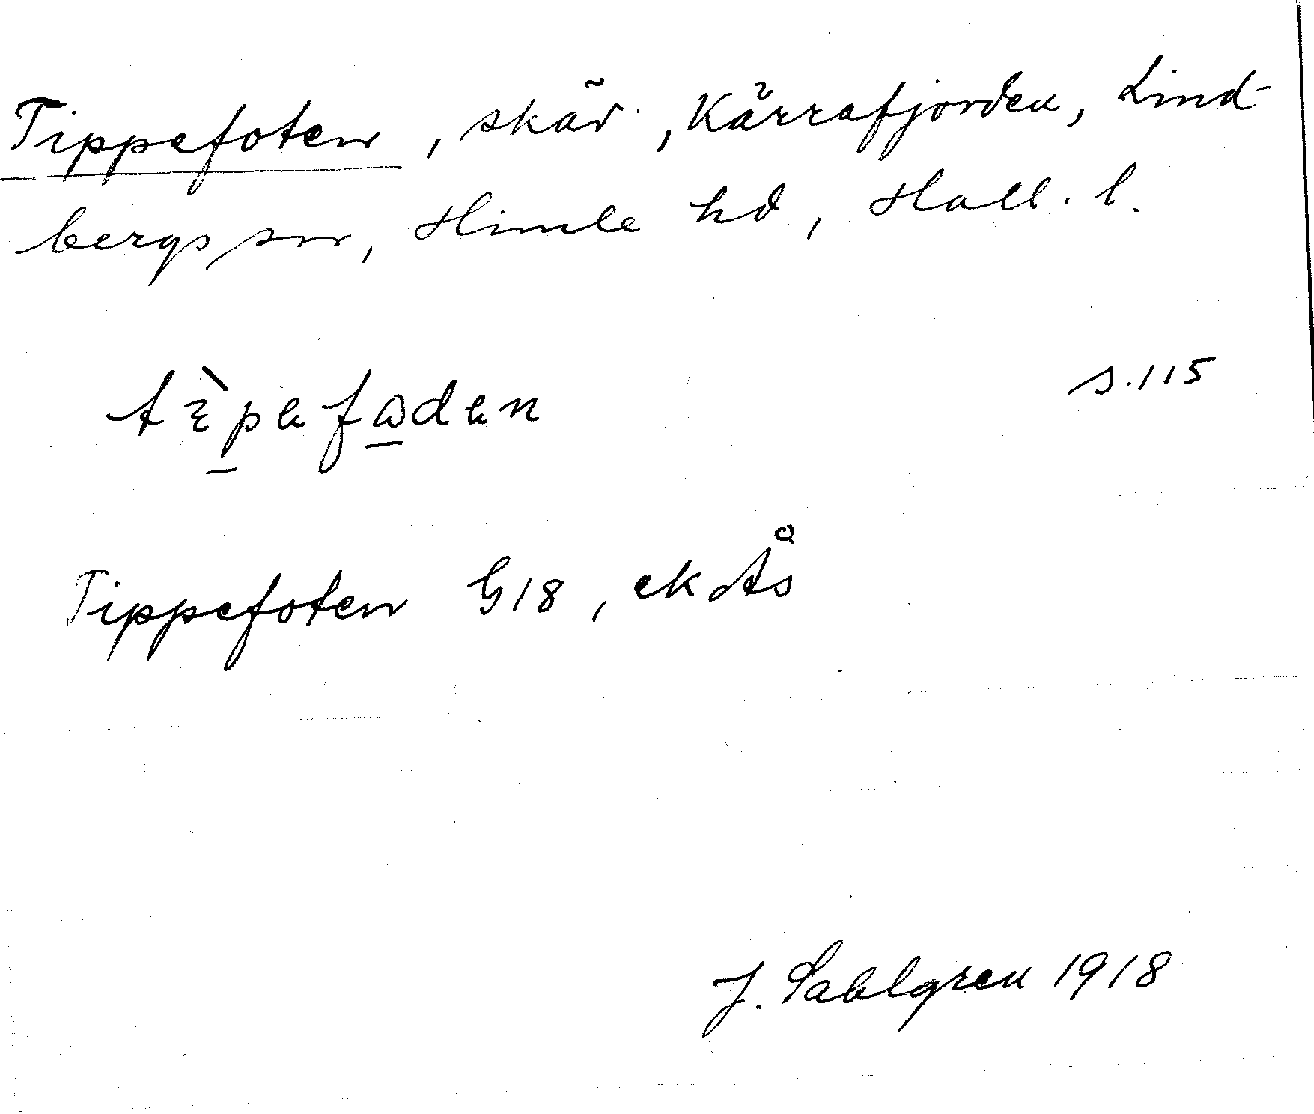 Tippefoten, skär, Kärrafjorden, Lind-
bergs sn, Himle hd, Hall. l.
s. 115
Tippefoten G18, ekAs
J. Sahlgren 1918